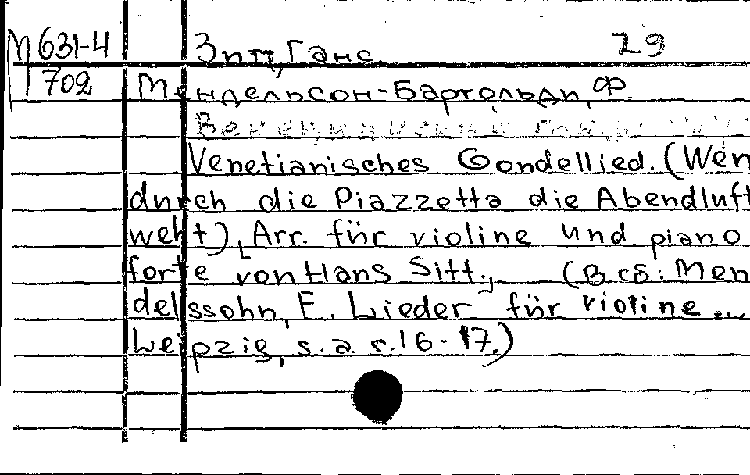 М 631-4 Зитт, Ганс. 29
702 Мендельсон-Бартольди, Ф.
Венецианский
Venetianisches Gondellied. (Wen
durch die Piazzetta die Abendluft
weht), Arr. für violine und piano
forte von Hans Sitt., (В сб: Men
delssohn, F. Lieder für violine ...
Leipzig, s. a. s. 16-17.)